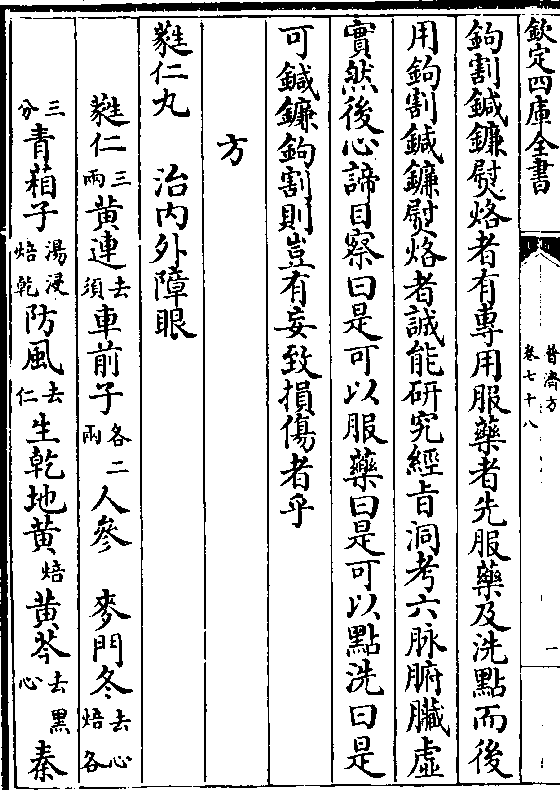 欽定四庫全書
普濟方
卷七十八
一
鉤割鍼鐮熨烙者有專用服藥者先服藥及洗點而後
用鉤割鍼鐮熨烙者誠能研究經旨洞考六脉腑臟虛
實然後心諦目察曰是可以服藥曰是可以點洗曰是
可鍼鐮鉤割則豈有妄致損傷者乎
方
蕤仁丸 治內外障眼
蕤仁三兩黃連去須車前子各二兩人參 麥門冬去心焙各
三分青葙子湯浸焙乾防風去仁生乾地黃焙黃芩去黑心秦